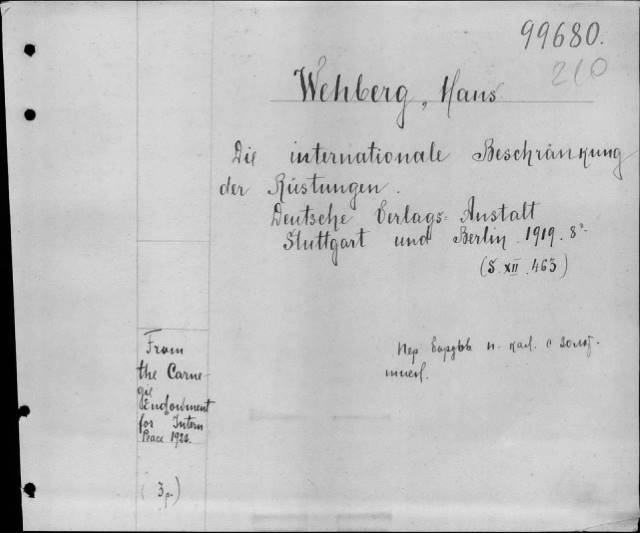 99680.
210
Wehberg, Hans
Die internationale Beschränkung
der Rüstungen.
Deutsche Verlags-Anstalt
Stuttgart und Berlin. 1919. 8°
(S. XII. 463)
From
the Carne-
gie
Endowment
for Intern
Peace 1926.
(3 р.)
Пер. бордов. п. кал. с золот.
тисн.